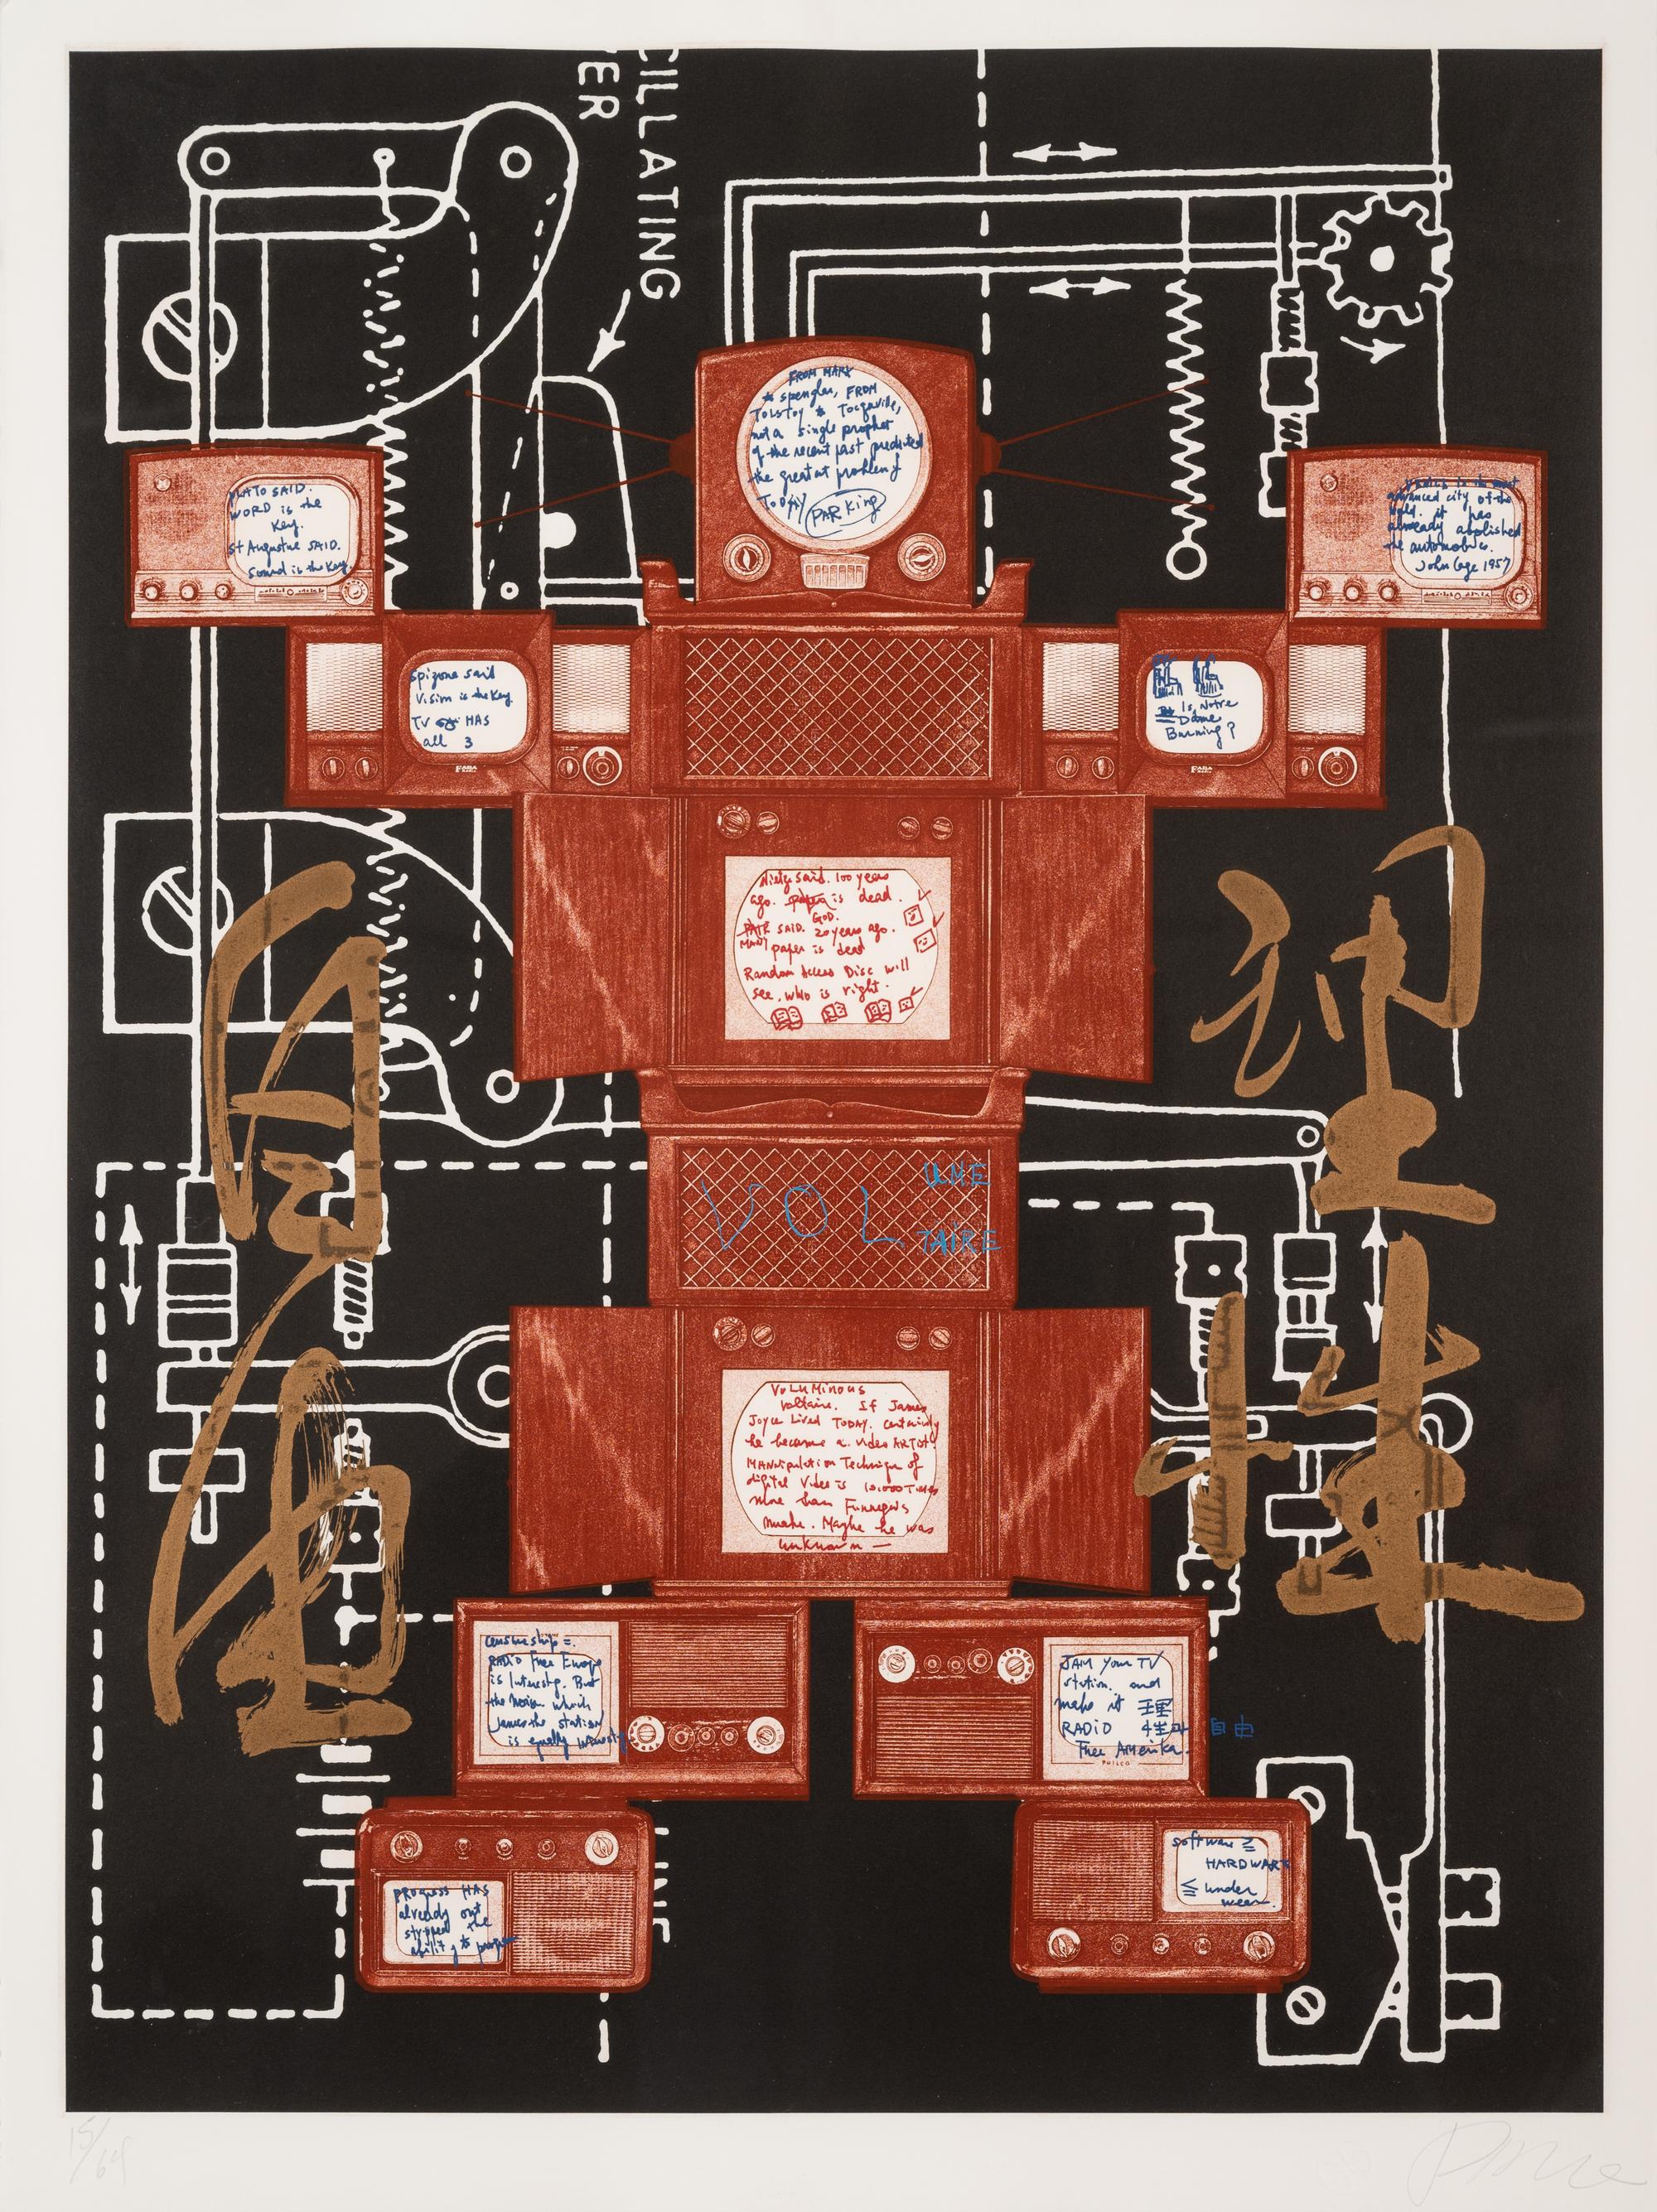 CILLATING
ER
FROM MARX
& spengler, FROM
TOLSTOY & Tocqueville,
not a single prophet
of the recent past predicted
the greatest problem of
TODAY PARKing
PLATO SAID.
WORD is the
Key.
St Augustine SAID.
Sound is the Key.
Venice is the most
advanced city of the
world. it has
already abolished
the automobiles.
John Cage 1957
Spizona said
Vision is the Key.
TV HAS
all 3
Is Notre
Dame
Burning?
FADA
FADA
Nietze said. 100 years
ago. is dead.
GOD.
PAIK SAID. 20 years ago.
MANY paper is dead
Random Access Disc will
see, who is right.
理性
自由
VOL UME
TAIRE
VOLUMinous
Voltaire. If James
Joyce Lived TODAY. certainly
he became a video ARTist.
MANipulation Technique of
digital Video is 10.000 Times
more than Finnegans
wake. Maybe he was
unknown —
censureship =.
RADIO Free Europe
is Interestg. But
the Noise which
james the station
is equally
JAM your TV
station. and
make it 理
RADIO 性과 自由
Free AMerika.
PHILCO
PROgress HAS
already out
stypped the
ability to progress
software ≥
HARDWARE
≤ under
wear.
15/64